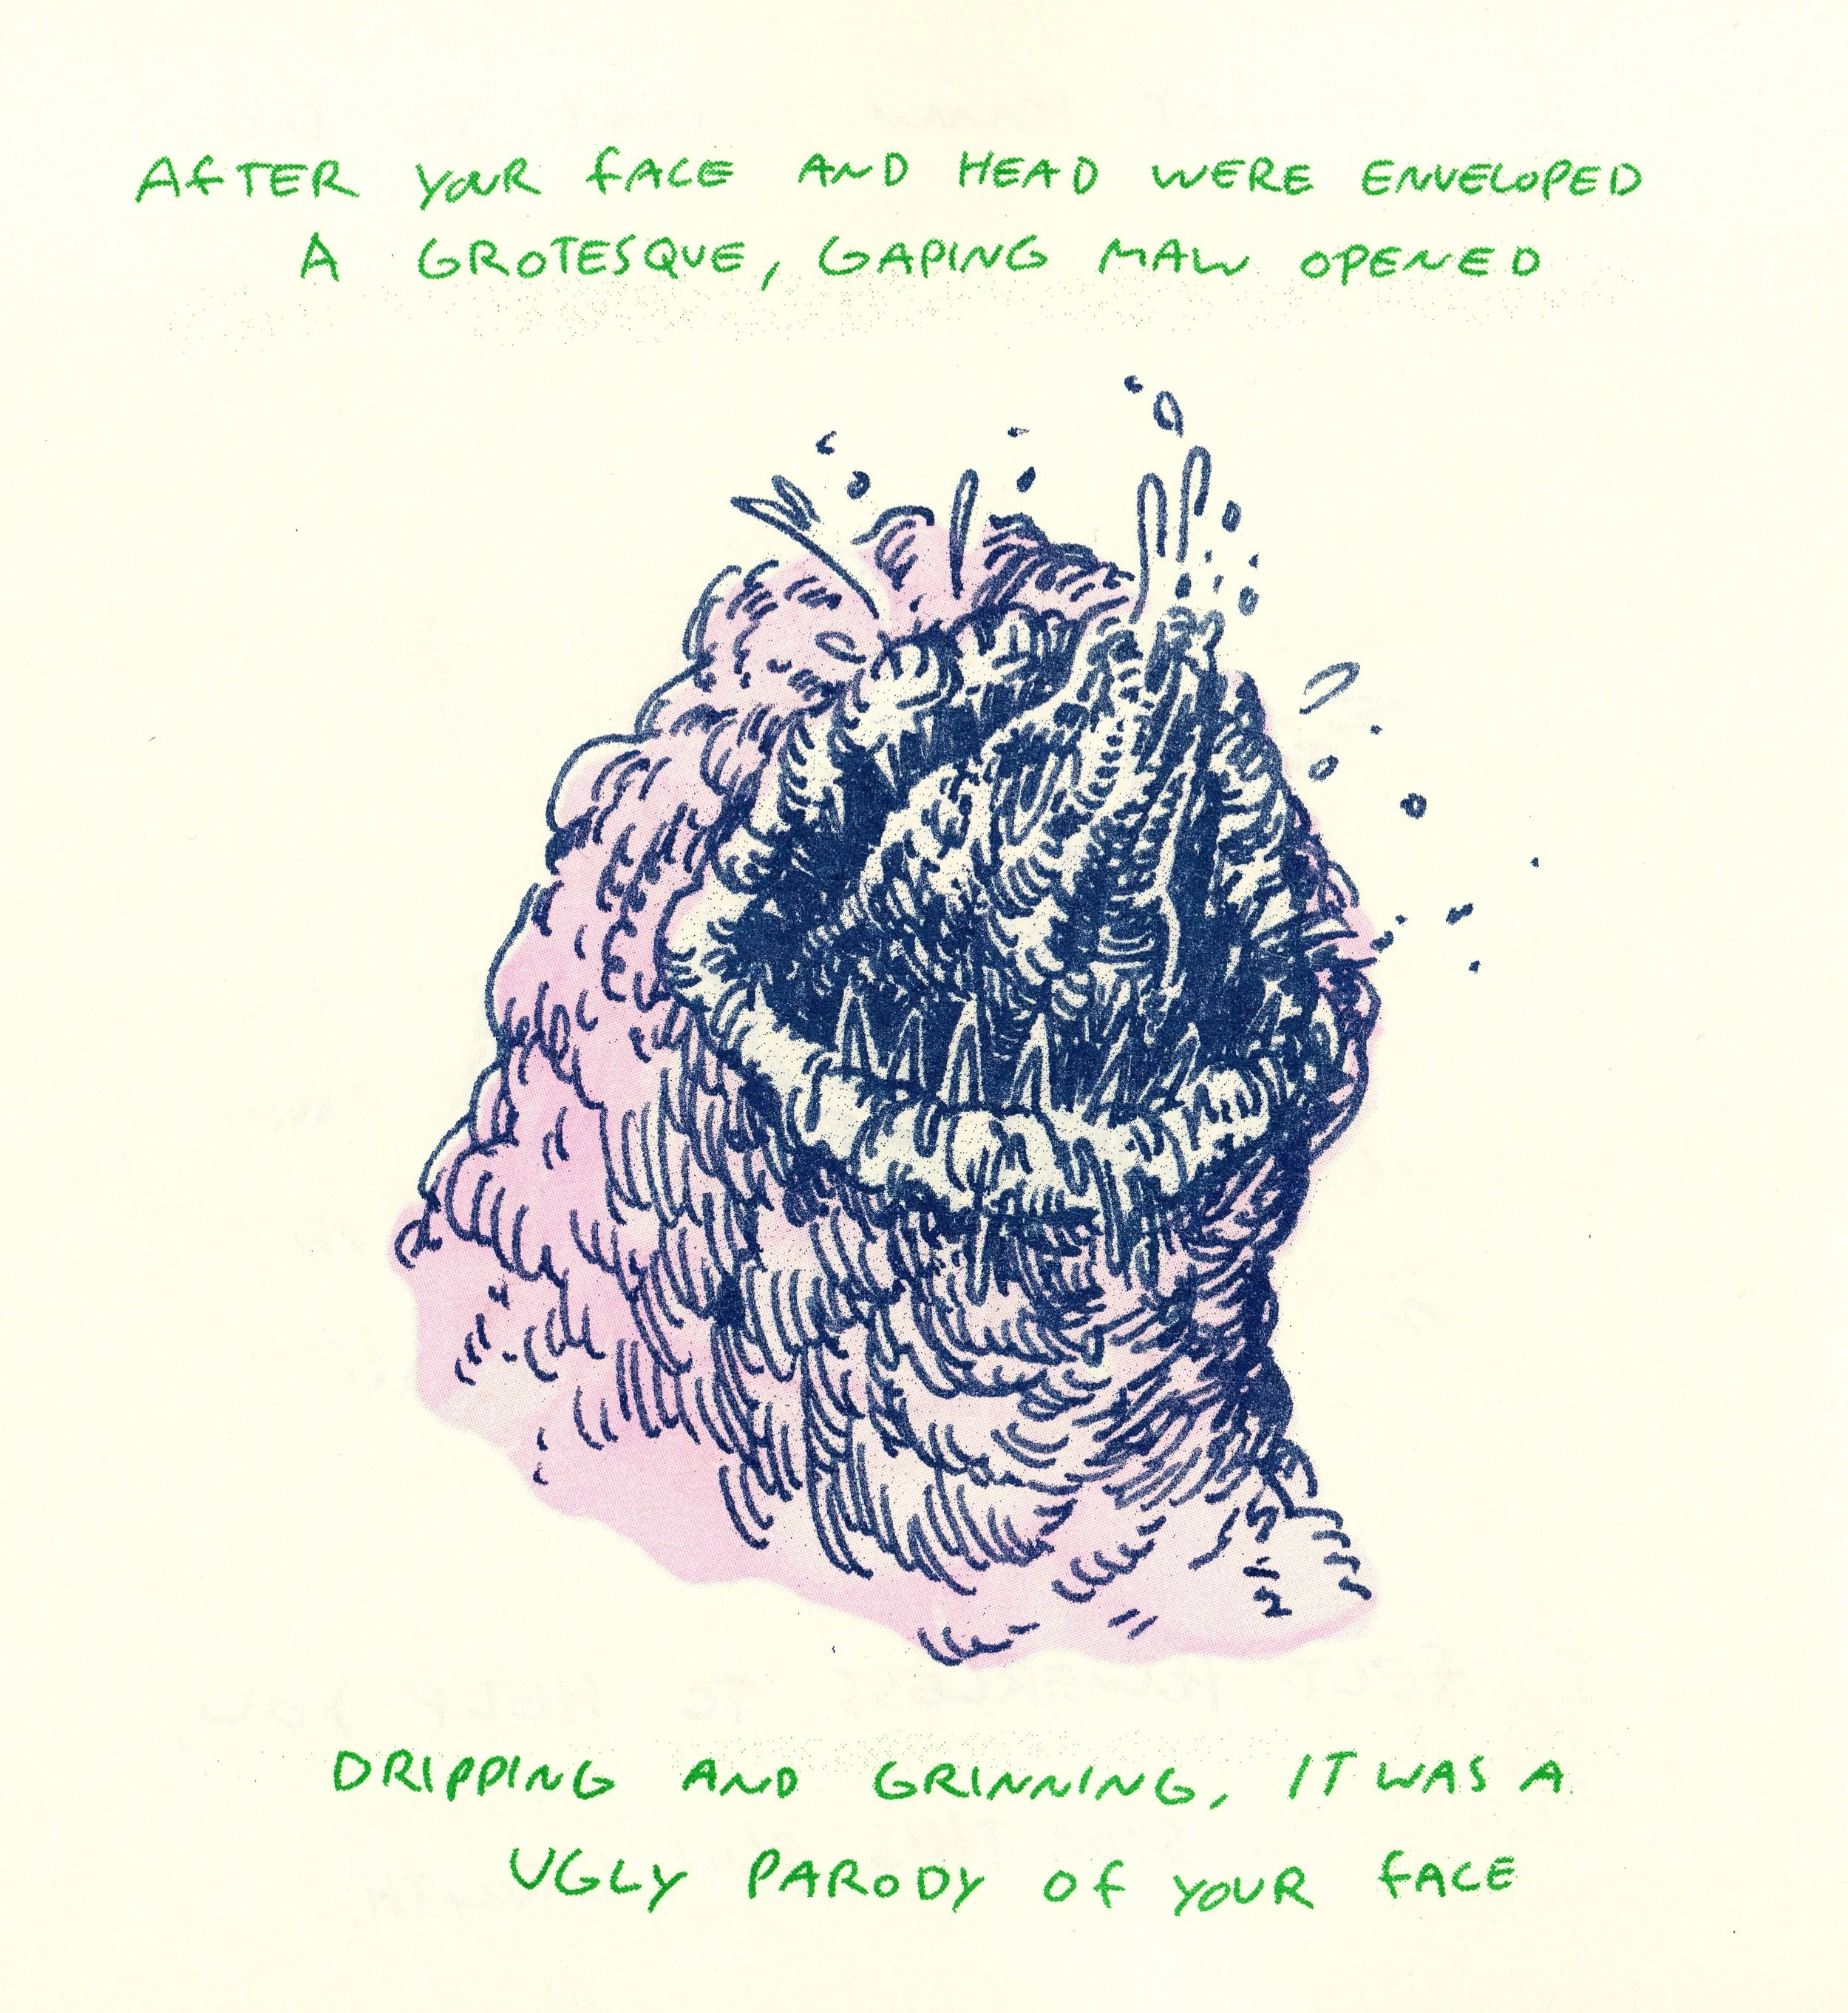 AFTER YOUR FACE AND HEAD WERE ENVELOPED
A GROTESQUE, GAPING MAW OPENED
DRIPPING AND GRINNING, IT WAS A
UGLY PARODY OF YOUR FACE